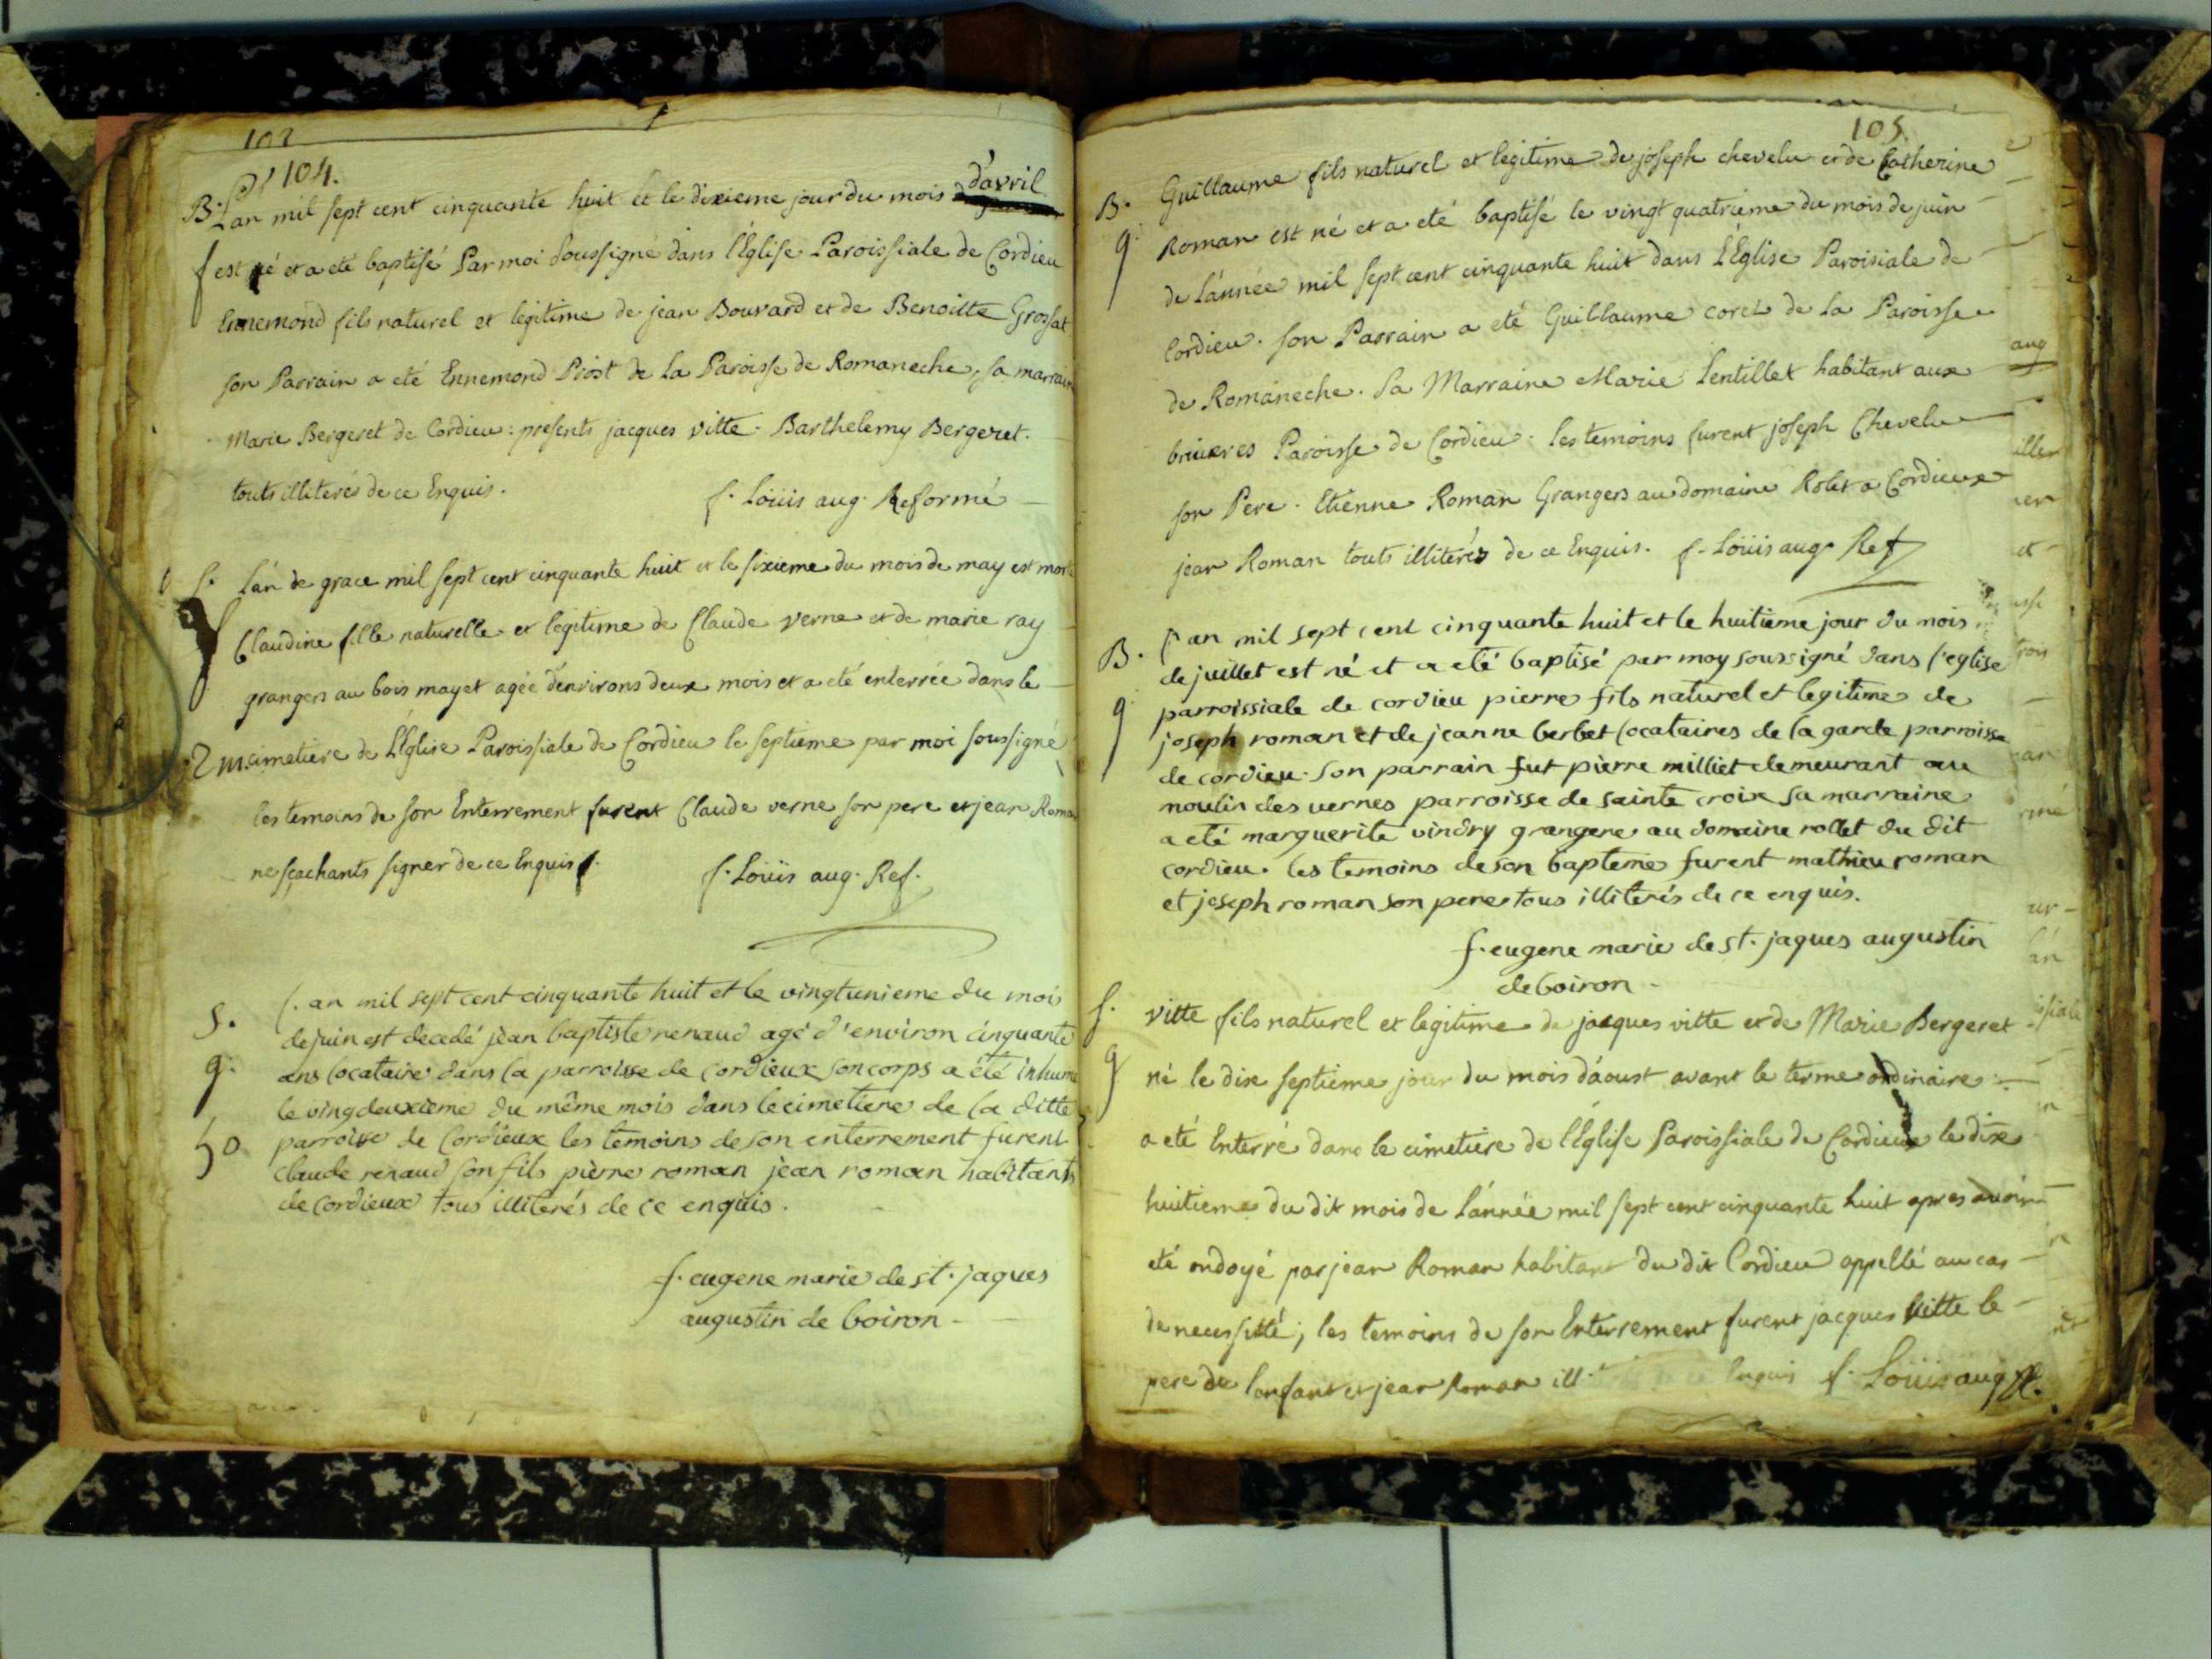 104.
B. L'an mil sept cent cinquante huit et le dixieme jour du mois d'avril
est né et a eté baptisé Par moi soussigné dans l'Eglise Paroissiale de Cordieu
Ennemond fils naturel et legitime de jean Bouvard et de Benoitte Grossat
son Parrain a eté Ennemond Piost de la Paroisse de Romaneche, sa marraine
Marie Bergeret de Cordieu : presents jacques vitte. Barthelemy Bergeret.
touts illiterés de ce Enquis.
f. Loüis aug. Reformé
S. L'an de grace mil sept cent cinquante huit et le sixieme du mois de may est morte
Claudine fille naturelle et legitime de Claude verne et de marie ray
grangers au bois mayet agée d'environs deux mois et a eté enterrée dans le
2 m. cimetiere de L'Eglise Paroissiale de Cordieu le septieme par moi soussigné
les temoins de son Enterrement furent Claude verne son pere et jean Roman
ne sçachants signer de ce Enquis.
f. Loüis aug. Ref.
S. l'an mil sept cent cinquante huit et le vingtunieme du mois
de juin est decedé jean baptiste renaud agé d'environ cinquante
g. ans locataire dans la parroisse de cordieux son corps a été inhumé
le vingdeuxieme du même mois dans le cimetiere de la ditte
50 parroisse de Cordieux les temoins de son enterrement furent
claude renaud son fils pierre roman jean roman habitants
de cordieux tous illiterés de ce enquis.
f. eugene marie de st. jaques
augustin de boiron
105.
B. Guillaume fils naturel et legitime de joseph chevelu et de Catherine
g. Roman est né et a eté baptisé le vingt quatrieme du mois de juin
de l'année mil sept cent cinquante huit dans L'Eglise Paroisiale de
Cordieu. son Parrain a eté Guillaume coret de la Paroisse
de Romaneche. Sa Marraine Marie Lentillet habitant aux
bruieres Paroisse de Cordieu. les temoins furent joseph Chevelu
son Pere. Etienne Roman Grangers au domaine Rolet a Cordieux
jean Roman touts illiterés de ce Enquis. f. Loüis aug. Ref
B. l'an mil sept cent cinquante huit et le huitieme jour du mois
de juillet est né et a eté baptisé par moy soussigné dans l'eglise
g parroissiale de cordieu pierre fils naturel et legitime de
joseph roman et de jeanne berbet locataires de la garde parroisse
de cordieu. son parrain fut pierre milliet demeurant au
moulin des vernes parroisse de sainte croix sa marraine
a eté marguerite vindry grangere au domaine rollet du dit
cordieu. les temoins de son bapteme furent mathieu roman
et joseph roman son pere tous illiterés de ce enquis.
f. eugene marie de st. jaques augustin
de boiron
S. vitte fils naturel et legitime de jacques vitte et de Marie Bergeret
g né le dix septieme jour du mois d'aoust avant le terme ordinaire
a eté Enterré dans le cimetiere de l'Eglise Paroissiale de Cordieux le dix
huitieme du dit mois de l'année mil sept cent cinquante huit apres avoir
eté ondoyé par jean Roman habitant du dit Cordieu appellé au cas
de necessité ; les temoins de son Enterrement furent jacques Vitte le
pere de l'enfant et jean Roman ill. Enquis f. Loüis aug R.